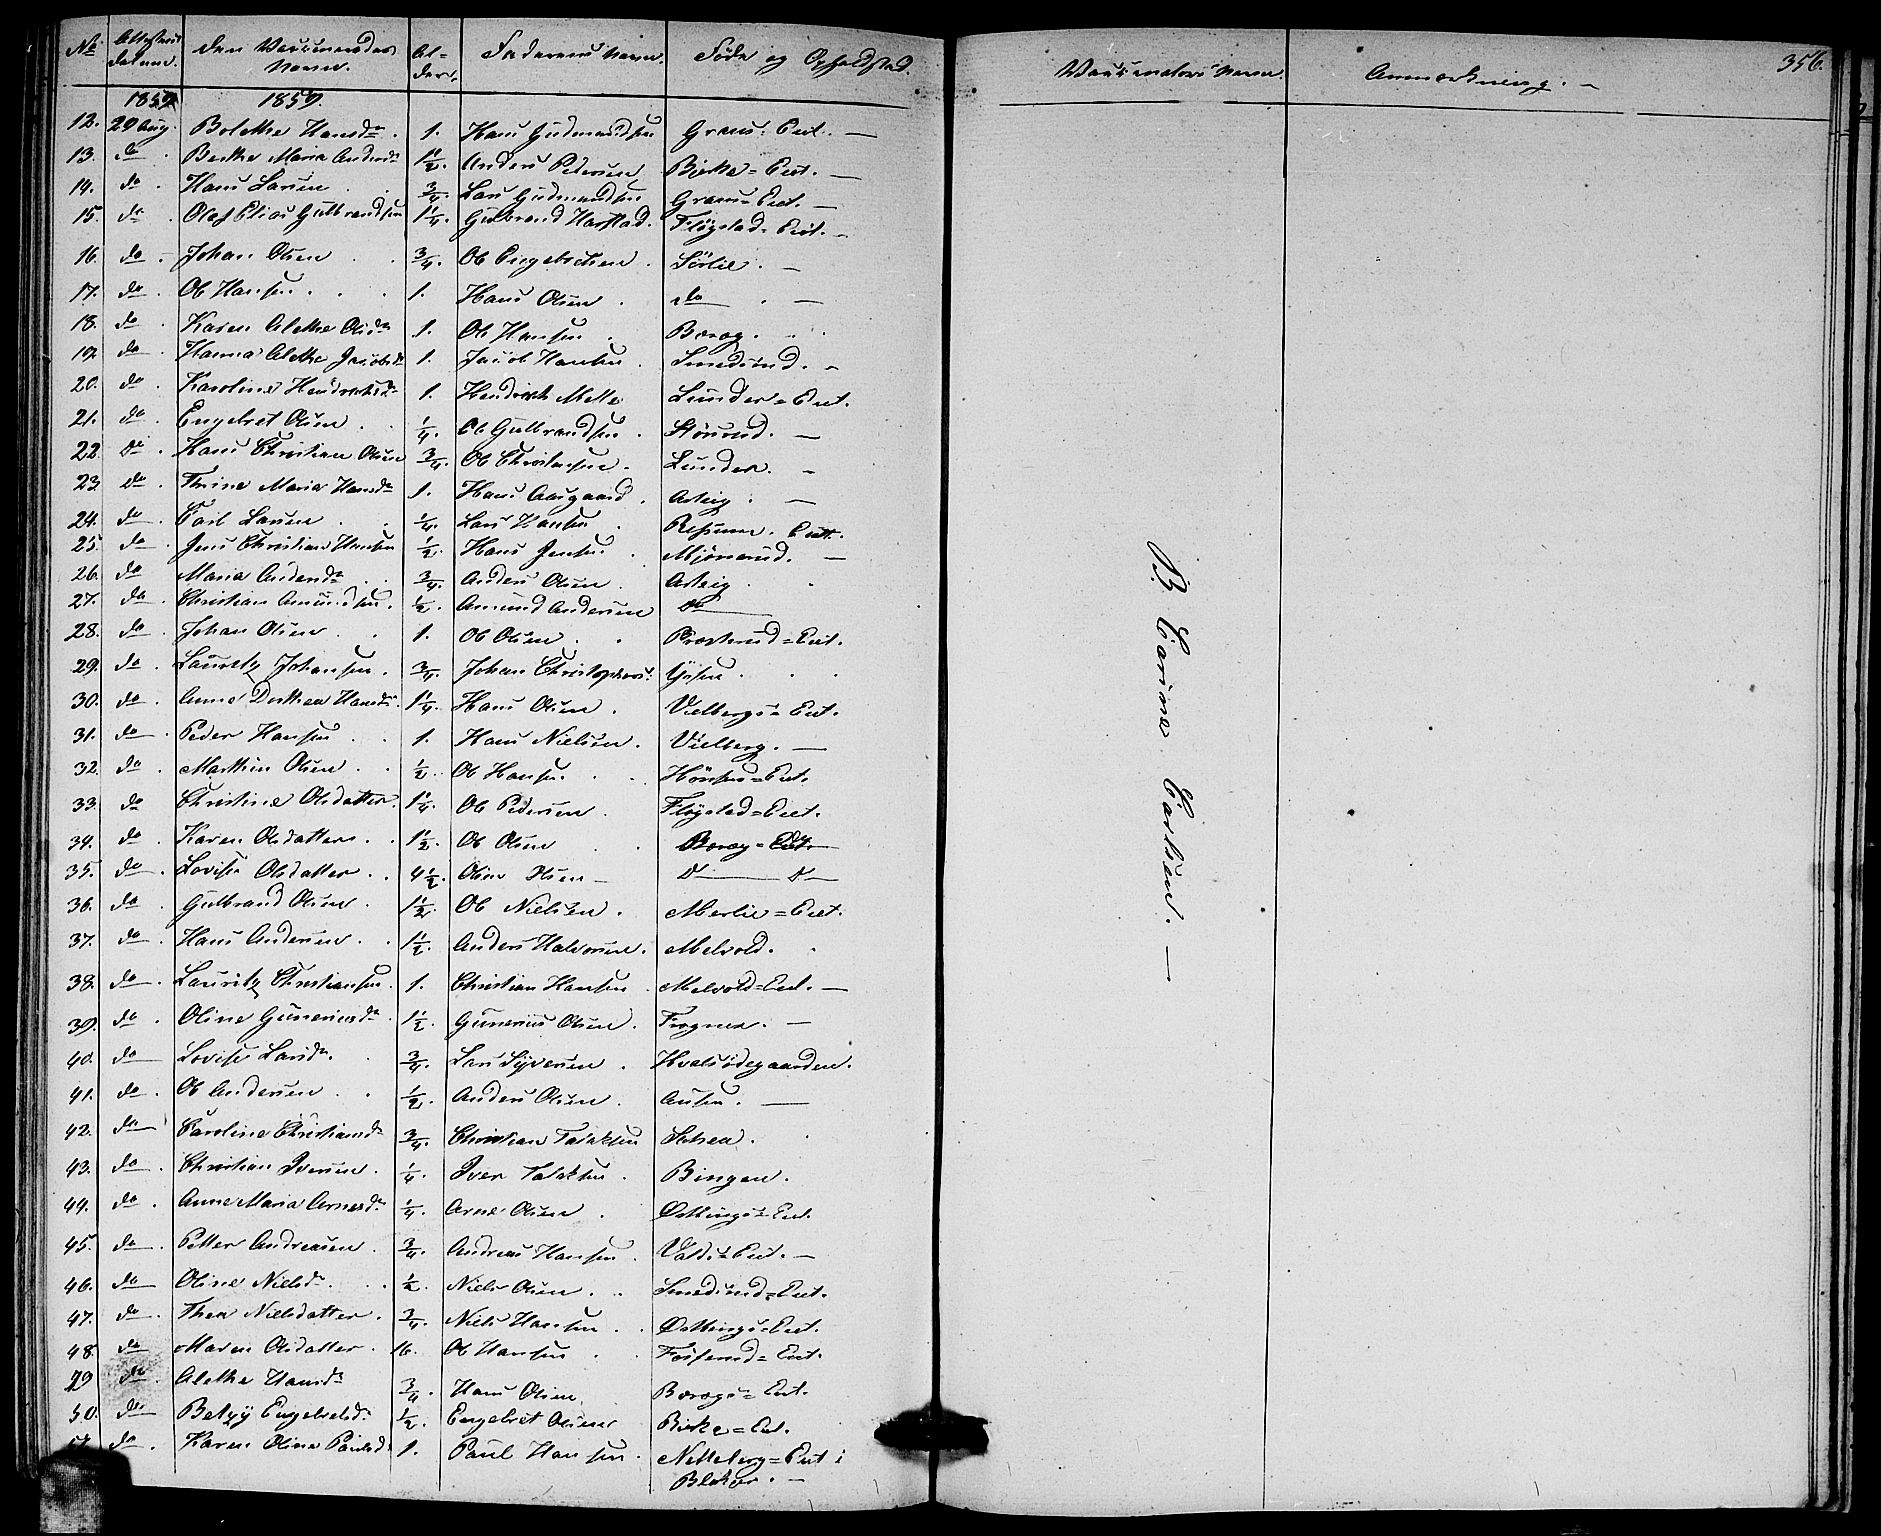 No. Attestens Datum. Den Vaccineredes Navn. Al-der. Faderens Navn. Føde og Opholdsted. Vaccinators Navn. Anmærkning. 356.
1859 1859.
12. 29 Aug. Bolethe Hansdr. 1. Hans Gudmundsen Graus. Eiet. —
13. do Berthe Maria Andersdr 1 1/2. Anders Pedersen Birke = Eiet. —
14. do Hans Larsen 3/4. Lars Gudmundsen Graus = Eiet. —
15. do Olaf Elias Gulbrandsen 1 1/4. Gulbrand Harstad. Fløgstad = Eiet. —
16. do Johan Olsen 3/4. Ole Engebretsen Sørlie. —
17. do Ole Hansen 1. Hans Olsen do —
18. do Karen Alethe Olsdr 1. Ole Hansen Borog.
19. do Hanna Alethe Jacobsdr 1. Jacob Hansen Smedsrud. —
20. do Karoline Hendriksdr 1. Hendrick Melle Lunder = Eiet.
21. do Engebret Olsen 1/4. Ole Gulbrandsen —
22. do Hans Christian Olsen 3/4. Ole Christensen Lunder. —
23. do Thrine Maria Hansdr 1. Hans Aasgaard Asteig. —
24. do Carl Larsen 1/4. Lars Hansen Eiet.
25. do Jens Christian Hansen 1/2. Hans Jensen Mjønerud. —
26. do Maria Andersdr 3/4. Anders Olsen Asteig
27. do Christian Amundsen 1/2. Amund Andersen do
28. do Johan Olsen 1. Ole Olsen Præsterud = Eiet.
29. do Lauritz Johansen 3/4. Johan Christophers.
30. do Anne Dorthea Hansdr 1 1/4. Hans Olsen Vielbergs = Eiet.
31. do Peder Hansen 1. Hans Nielsen. Vielberg. —
32. do Marthin Olsen 1/2. Ole Hansen Eiet.
33. do Christine Olsdatter 1 1/4. Ole Pedersen Fløgstad = Eiet.
34. do Karen Olsdatter 1 1/2. Ole Olsen Borog = Eiet
35. do Lovise Olsdatter 4 1/2. Olsen — d — d —
36. do Gulbrand Olsen 1 1/2. Ole Nielsen Merlie = Eiet.
37. do Hans Andersen 1 1/2. Anders Halvorsen Melvold.
38. do Lauritz Christiansen 1. Christian Hansen Melvold = Eiet. —
39. do Oline Guneriusdr 1 1/2. Gunerius Olsen Frogner. —
40. do Lovise Larsdr. 3/4. Lars Syversen Hvalsødegaarden.
41. do Ole Andersen 1/2. Anders Olsen —
42. do Caroline Christiansdr 3/4. Christian Falaksen
43. do Christian Iversen 1/4. Iver Falaksen Bingen.
44. do Anne Maria Arnesdr 1/4. Arne Olsen Østtings = Eiet.
45. do Petter Andreasen 3/4. Andreas Hansen Valds = Eiet. —
46. do Oline Nielsdr. 1/2. Niels Olsen Smedsrud = Eiet.
47. do Thea Nielsdatter 3/4. Niels Hansen Østtings = Eiet.
48. do Maren Olsdatter 16. Ole Hansen Fosserud = Eiet.
49 do Alethe Hansdr 3/4. Hans Olsen Borogs = Eiet.
50. do Betzy Engebretsdr 1/2. Engebret Olsen Birke = Eiet.
51. do Karen Oline Paulsdr 1. Paul Hansen Netteberg = Eiet i
Blaker. —
B. Carine Carlsen. —